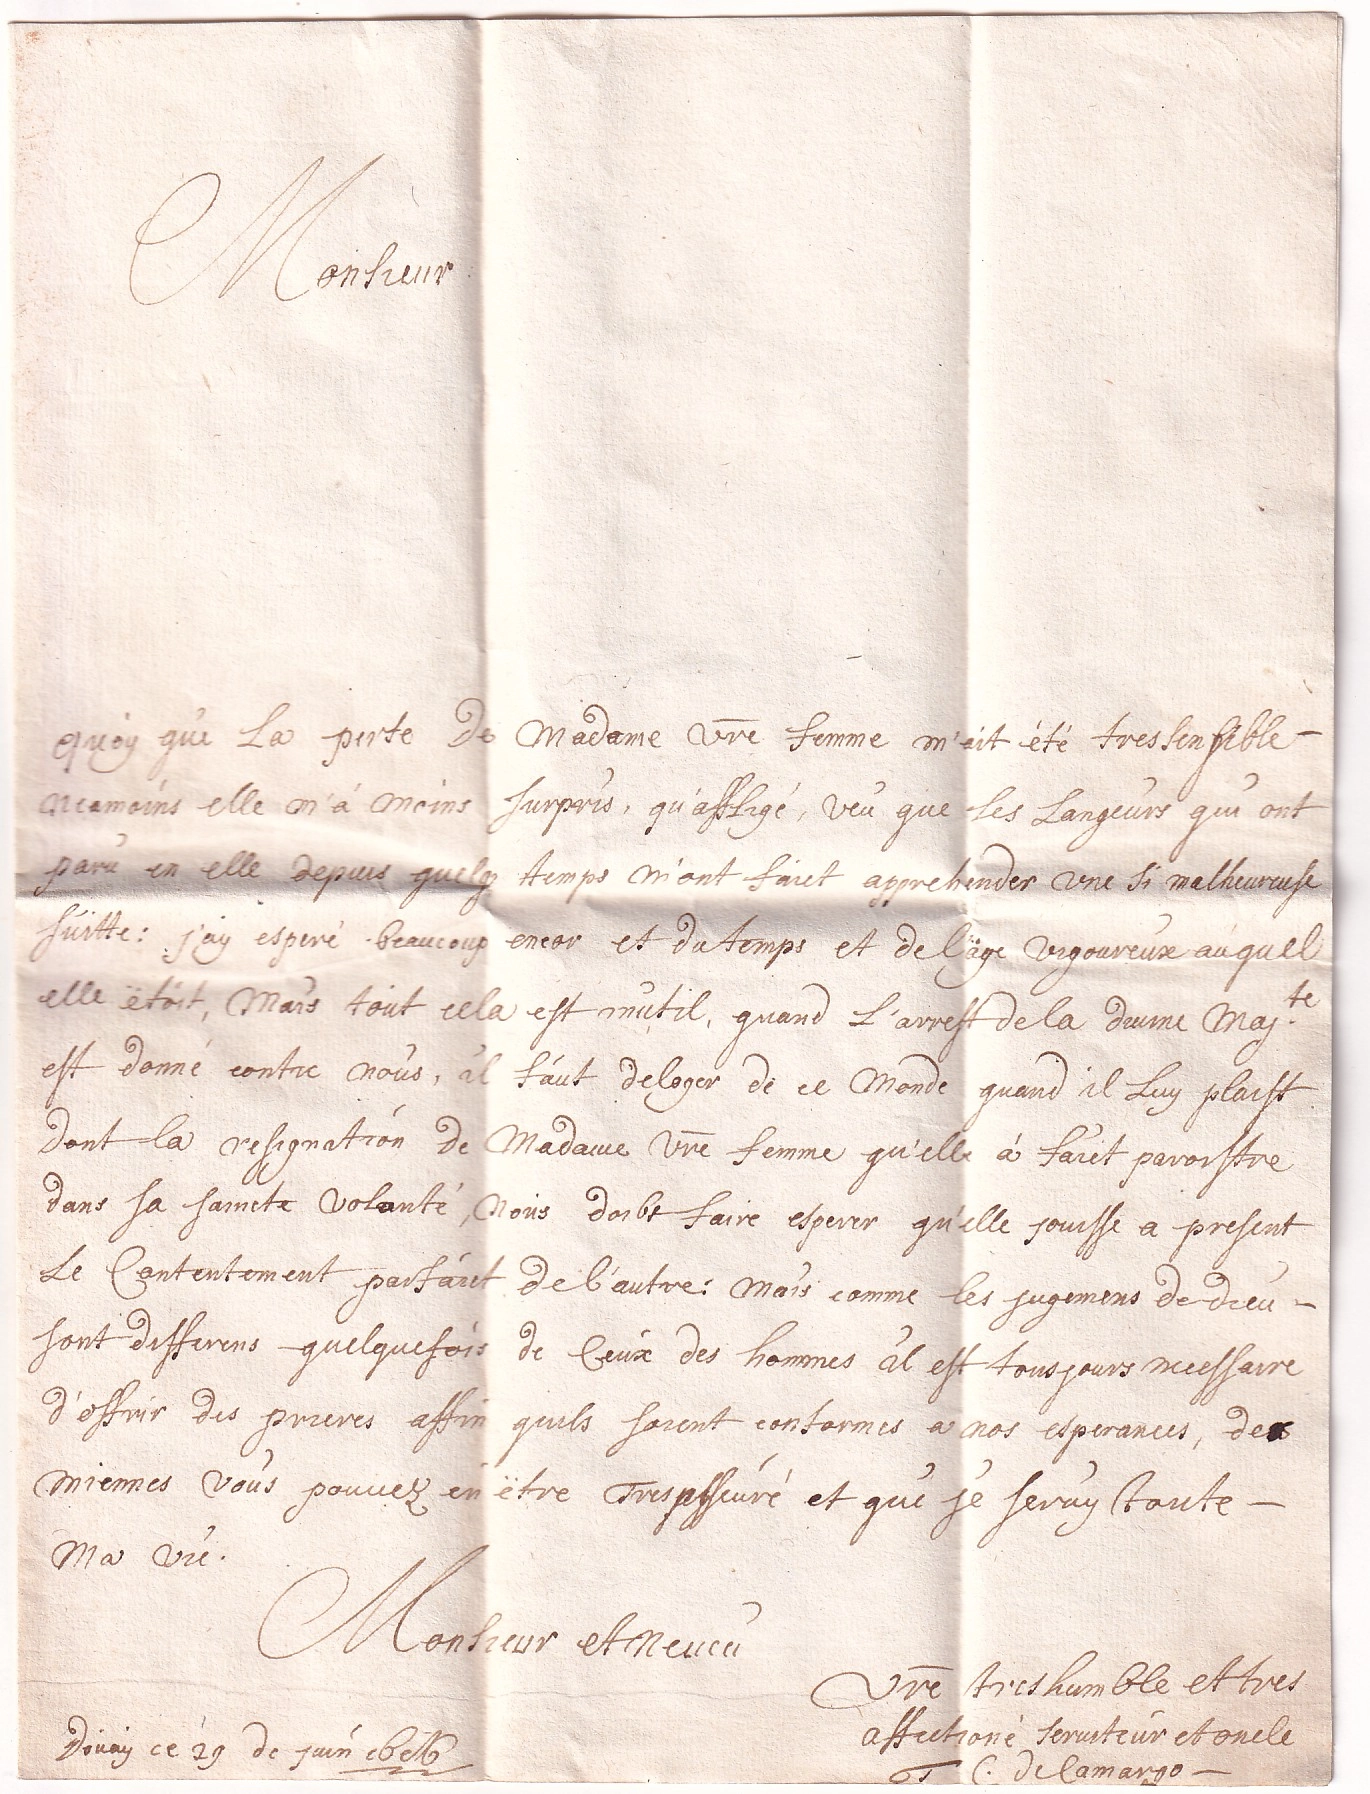 Monsieur
Quoy que La perte de Madame vre femme m'ait été tressensible
neamoins elle m'a moins surpris, qu'affligé, veu que les Langeurs qui ont
paru en elle depuis quelq temps m'ont faict apprehender vne si malheureuse
suitte: j'ay esperé beaucoup encor et du temps et de l'äge vigoureux auquel
elle ëtoit, Mais tout cela est inutil, quand L'arrest de la diuine Maj.te
est donné contre nous, il faut deloger de ce Monde quand il Luy plaist
dont la resignation de Madame vre femme qu'elle à faict paroistre
dans sa saincte volonté, nous doibt faire esperer qu'elle jouisse a present
Le Contentement parfaict de l'autre: Mais comme les jugemens de dieu
sont differens quelquefois de Ceux des hommes il est tousjours necessaire
d'offrir des prieres affin quils soient conformes a nos esperances, des
miennes vous pouuez en ëtre Tresasseuré et que je seray toute
Ma vie.
Monsieur et Neueu
Vre treshumble et tres
affectioné seruiteur et oncle
C. de Camargo
Douay ce 29 de juin